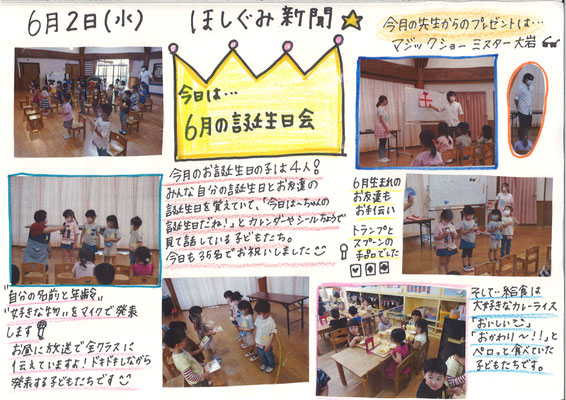 6月2日(水)
ほしぐみ新聞
今月の先生からのプレゼントは…
マジックショー ミスター大岩
今日は…
6月の誕生日会
今月のお誕生日の子は4人!
みんな自分の誕生日とお友達の
誕生日を覚えていて、「今日は〜ちゃんの
誕生日だね!」とカレンダーやシールちょうで
見て話している子どもたち。
今日も35名でお祝いしました
6月生まれの
お友達も
お手伝い
トランプと
スプーンの
手品でした
"自分の名前と年齢"
"好きな物"をマイクで発表
します
お昼に放送で全クラスに
伝えていますよ!ドキドキしながら
発表する子どもたちです
そして…給食は
大好きなカレーライス
「おいしい」
「おかわり〜!!」と
ペロッと食べていた
子どもたちです。